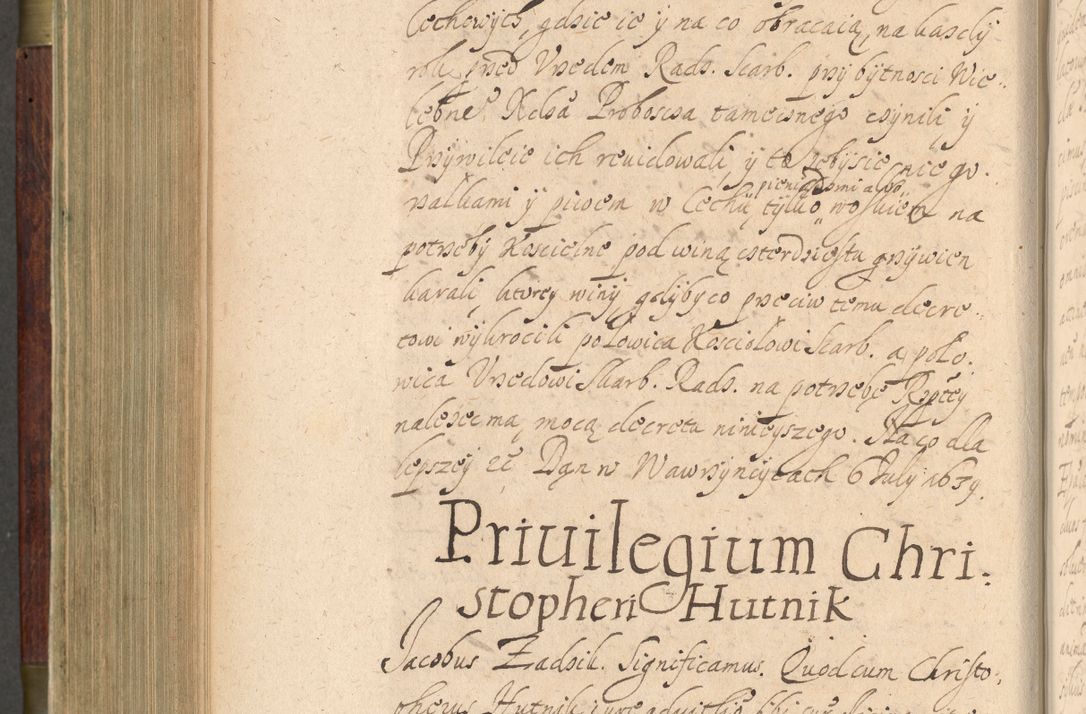 Cechowych, gdzie ie ÿ na co obracaią, na kazdÿ
rok przed Vrzedem Rads. Skarb. przÿ bÿtnosci Wie„
lebne° Xdsa Proboscza tamecznego czÿnili ÿ
Przÿwileie ich reuidowali, ÿ to zebÿ sie nie go„
rzalkami ÿ piwem w Cechu, pieniądzmi albo
tÿlko woskiem na
potrzebÿ Koscielne pod winą czterdziestu grzÿwien
karali, ktorey winÿ gdÿbÿ co przeciw temu decre„
towi wÿkrocili polowica Kosciolowi Skarb. a polo„
wica Vrzedowi Skarb. Rads. na potrzebe Rzptey
nalezec ma, mocą decretu ninieyszego. Na co dla
lepszey ec̃ Dan w Wawrzÿncÿcach 6 July 1639.
Priuilegium Chri:
stopheri Hutnik
Jacobus Zadzik. Significamus. Quod cum Christo„
pherus Hutnik